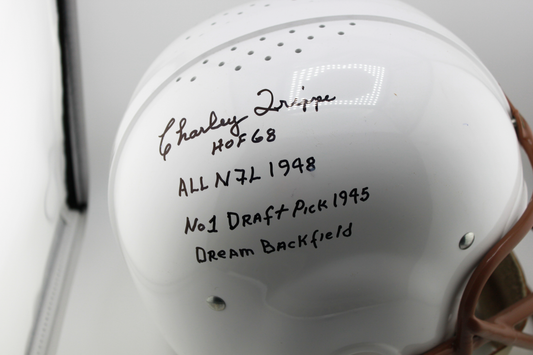 Charley Trippi
HOF 68
ALL N7L 1948
No1 DRAft Pick 1945
DREAM BACKfield